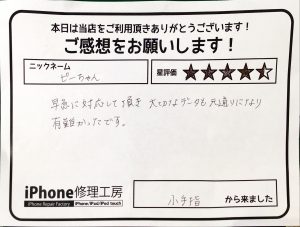 本日は当店をご利用頂きありがとうございます!
ご感想をお願いします!
ニックネーム
ピーちゃん
星評価 ★★★★⯪
早急に対応して頂き 大切なデータも元通りになり
有難かったです。
iPhone修理工房
iPhone Repair Factory iPhone/iPad/iPod touch
小手指 から来ました